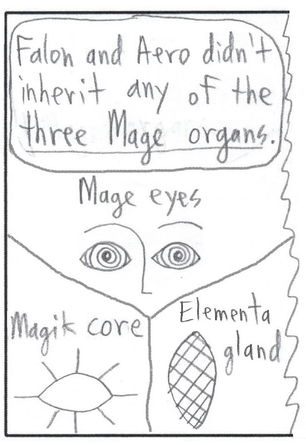 Falon and Aero didn't
inherit any of the
three Mage organs.
Mage eyes
Magik core
Elementa
gland